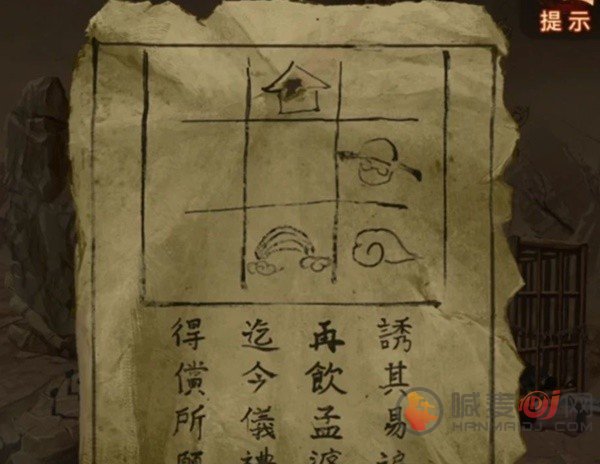 提示
誘其易
再飲孟婆
迄今儀禮
得償所願
喊麦网
HANMAIDJ.COM